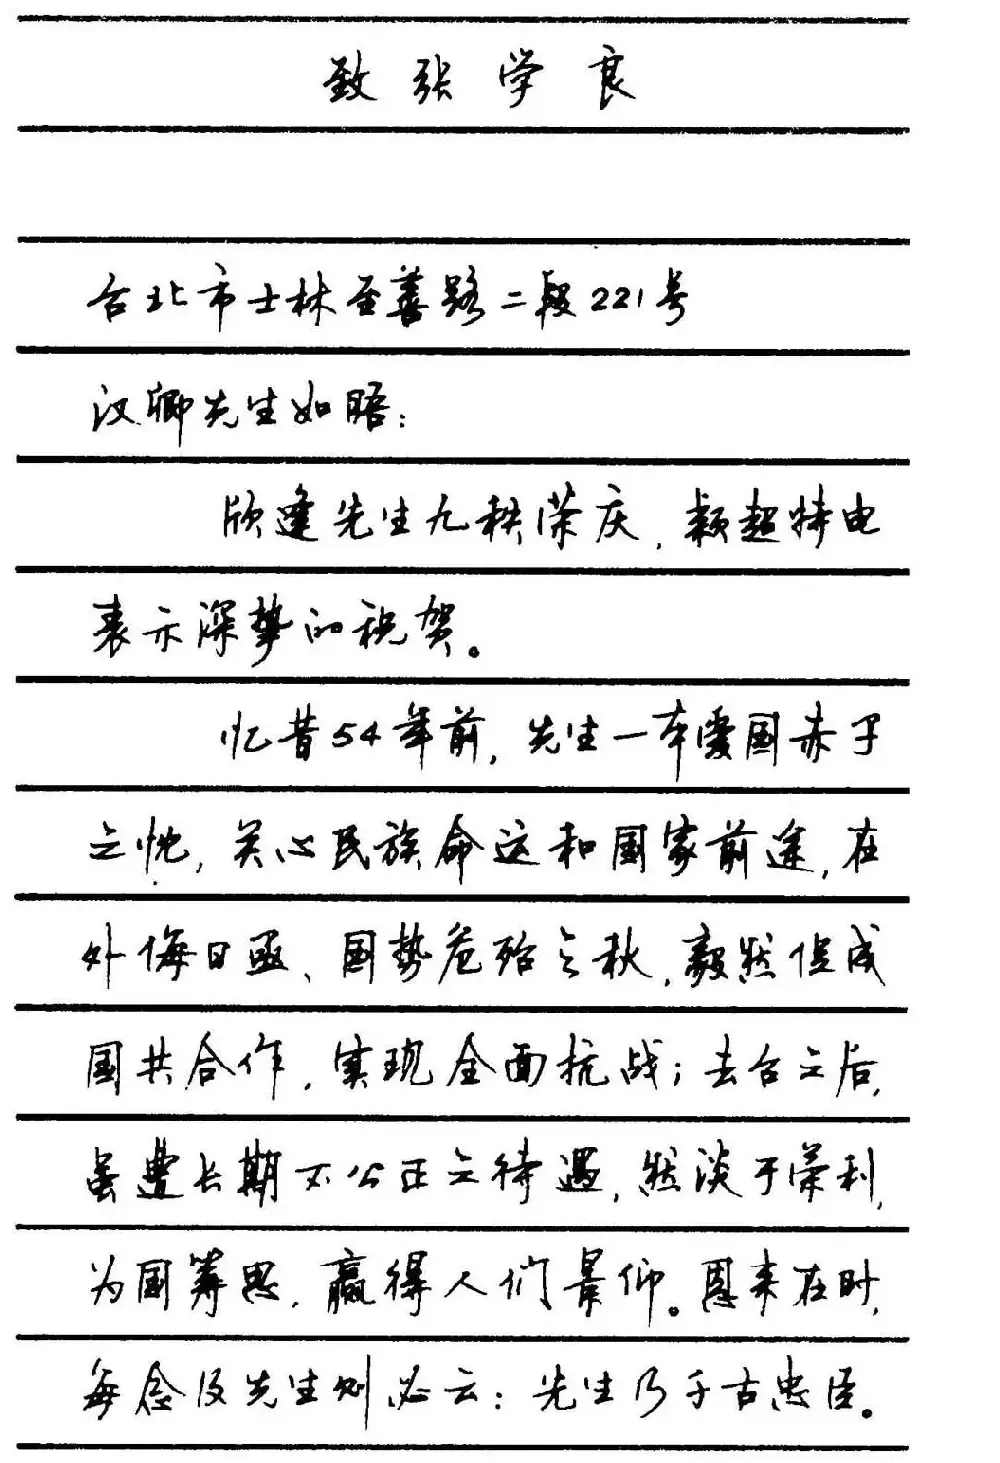 致张学良
台北市士林至善路二段221号
汉卿先生如晤：
欣逢先生九秩荣庆，颖超特电
表示深挚的祝贺。
忆昔54年前，先生一本爱国赤子
之忱，关心民族命运和国家前途，在
外侮日亟、国势危殆之秋，毅然促成
国共合作，实现全面抗战；去台之后，
虽遭长期不公正之待遇，然淡于荣利，
为国筹思，赢得人们景仰。恩来在时，
每念及先生则必云：先生乃千古忠臣。